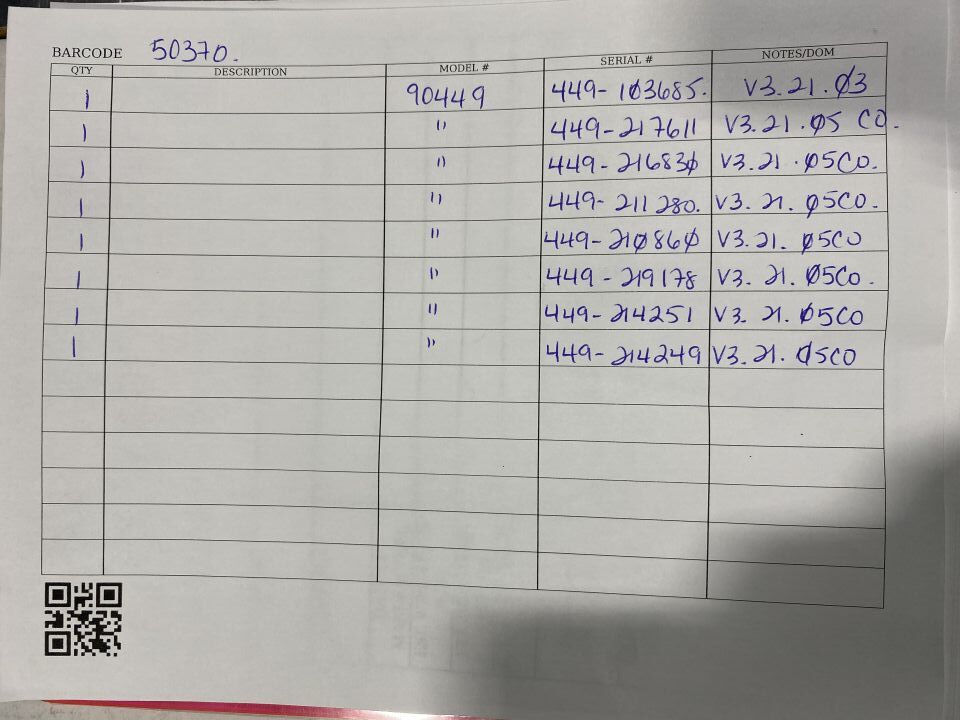 BARCODE 50370.
QTY DESCRIPTION MODEL # SERIAL # NOTES/DOM
1 90449 449-103685. V3.21.03
1 " 449-217611 V3.21.05 CO.
1 " 449-216830 V3.21.05CO.
1 " 449-211280. V3.21.05CO.
1 " 449-210860 V3.21.05CO
1 " 449-219178 V3.21.05CO.
1 " 449-214251 V3.21.05CO
1 " 449-214249 V3.21.05CO